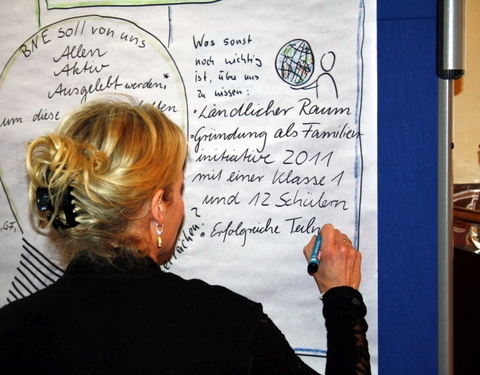 BNE soll von uns
Allen
Aktiv
Ausgelebt werden*
um diese
Was sonst
noch wichtig
ist, über uns
zu wissen:
• Ländlicher Raum
• Gründung als Familien-
initiative 2011
mit einer Klasse 1
und 12 Schülern
• Erfolgreiche Teiln